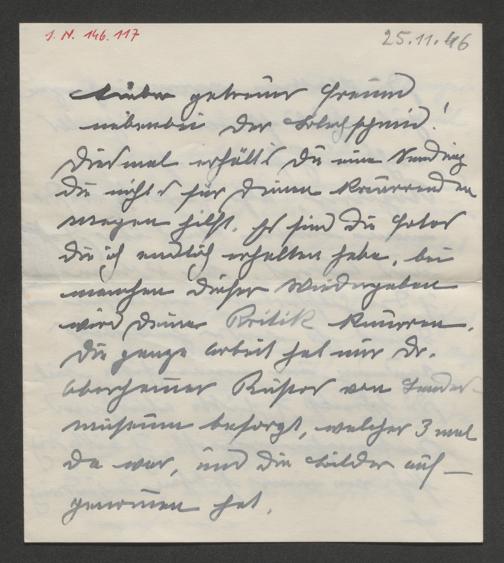 J. N. 146.117
25.11.46
Lieber getreuer Freund
nebenbei der
Diesmal erhälst Du eine Sendung
die nichts für Deinen knurrenden
Magen hilft. Es sind die Fotos
die ich endlich erhalten habe, bei
manchen dieser Wiedergaben
wird Deine Kritik knurren.
Die ganze Arbeit hat mir Dr.
Kustos von Landes
museum besorgt, welcher 3 mal
da war, und die Bilder auf-
genommen hat.